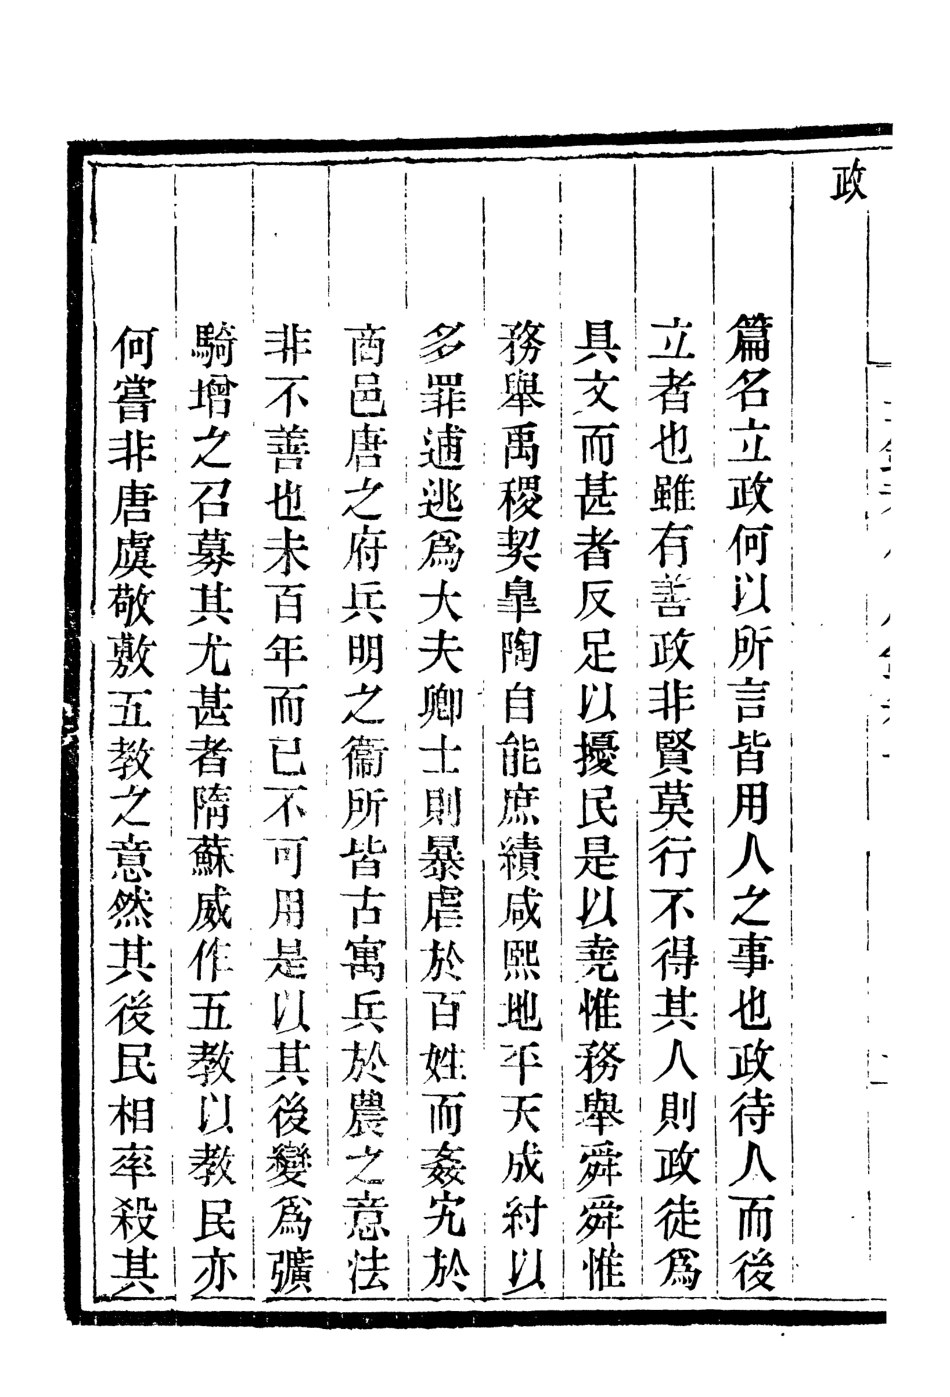 政
篇名立政何以所言皆用人之事也政待人而後
立者也雖有善政非賢莫行不得其人則政徒爲
具文而甚者反足以擾民是以堯惟務舉舜舜惟
務舉禹稷契臯陶自能庶績咸熙地平天成紂以
多罪逋逃爲大夫卿士則暴虐於百姓而姦宄於
商邑唐之府兵明之衞所皆古寓兵於農之意法
非不善也未百年而已不可用是以其後變爲彍
騎增之召募其尤甚者隋蘇威作五教以教民亦
何嘗非唐虞敬敷五教之意然其後民相率殺其